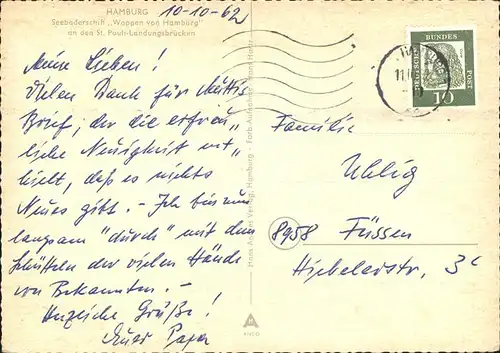 HAMBURG
10-10-62
Seebäderschiff „Wappen von Hamburg"
an den St. Pauli-Landungsbrücken
Meine Lieben!
Vielen Dank für Muttis
Brief, der die erfreu„
liche Neuigkeit ent„
hielt, daß es nichts
Neues gibt. - Ich bin nun
langsam "durch" mit dem
Schütteln der vielen Hände
von Bekannten. -
Herzliche Grüße!
Euer Papa
Verlag, Hamburg - Farb-Aufnahme
DEUTSCHE BUNDESPOST
10
Familie
Uhlig
8958 Füssen
Hiebelerstr, 3c